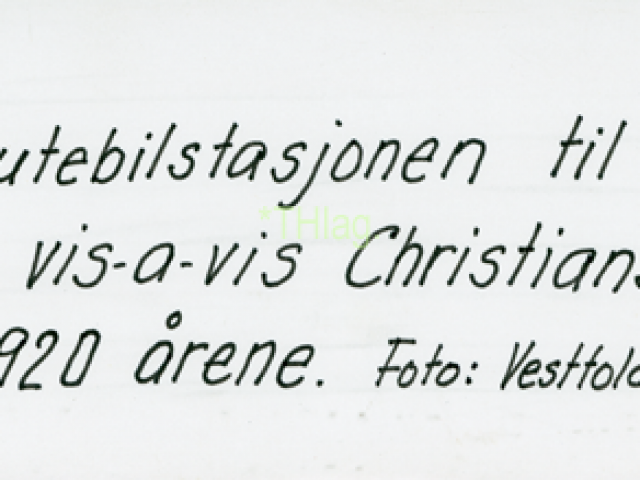 utebilstasjonen til
vis-a-vis Christians
*THlag
920 årene. Foto: Vestfold